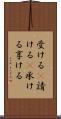 受ける《請
ける《承け
る享ける